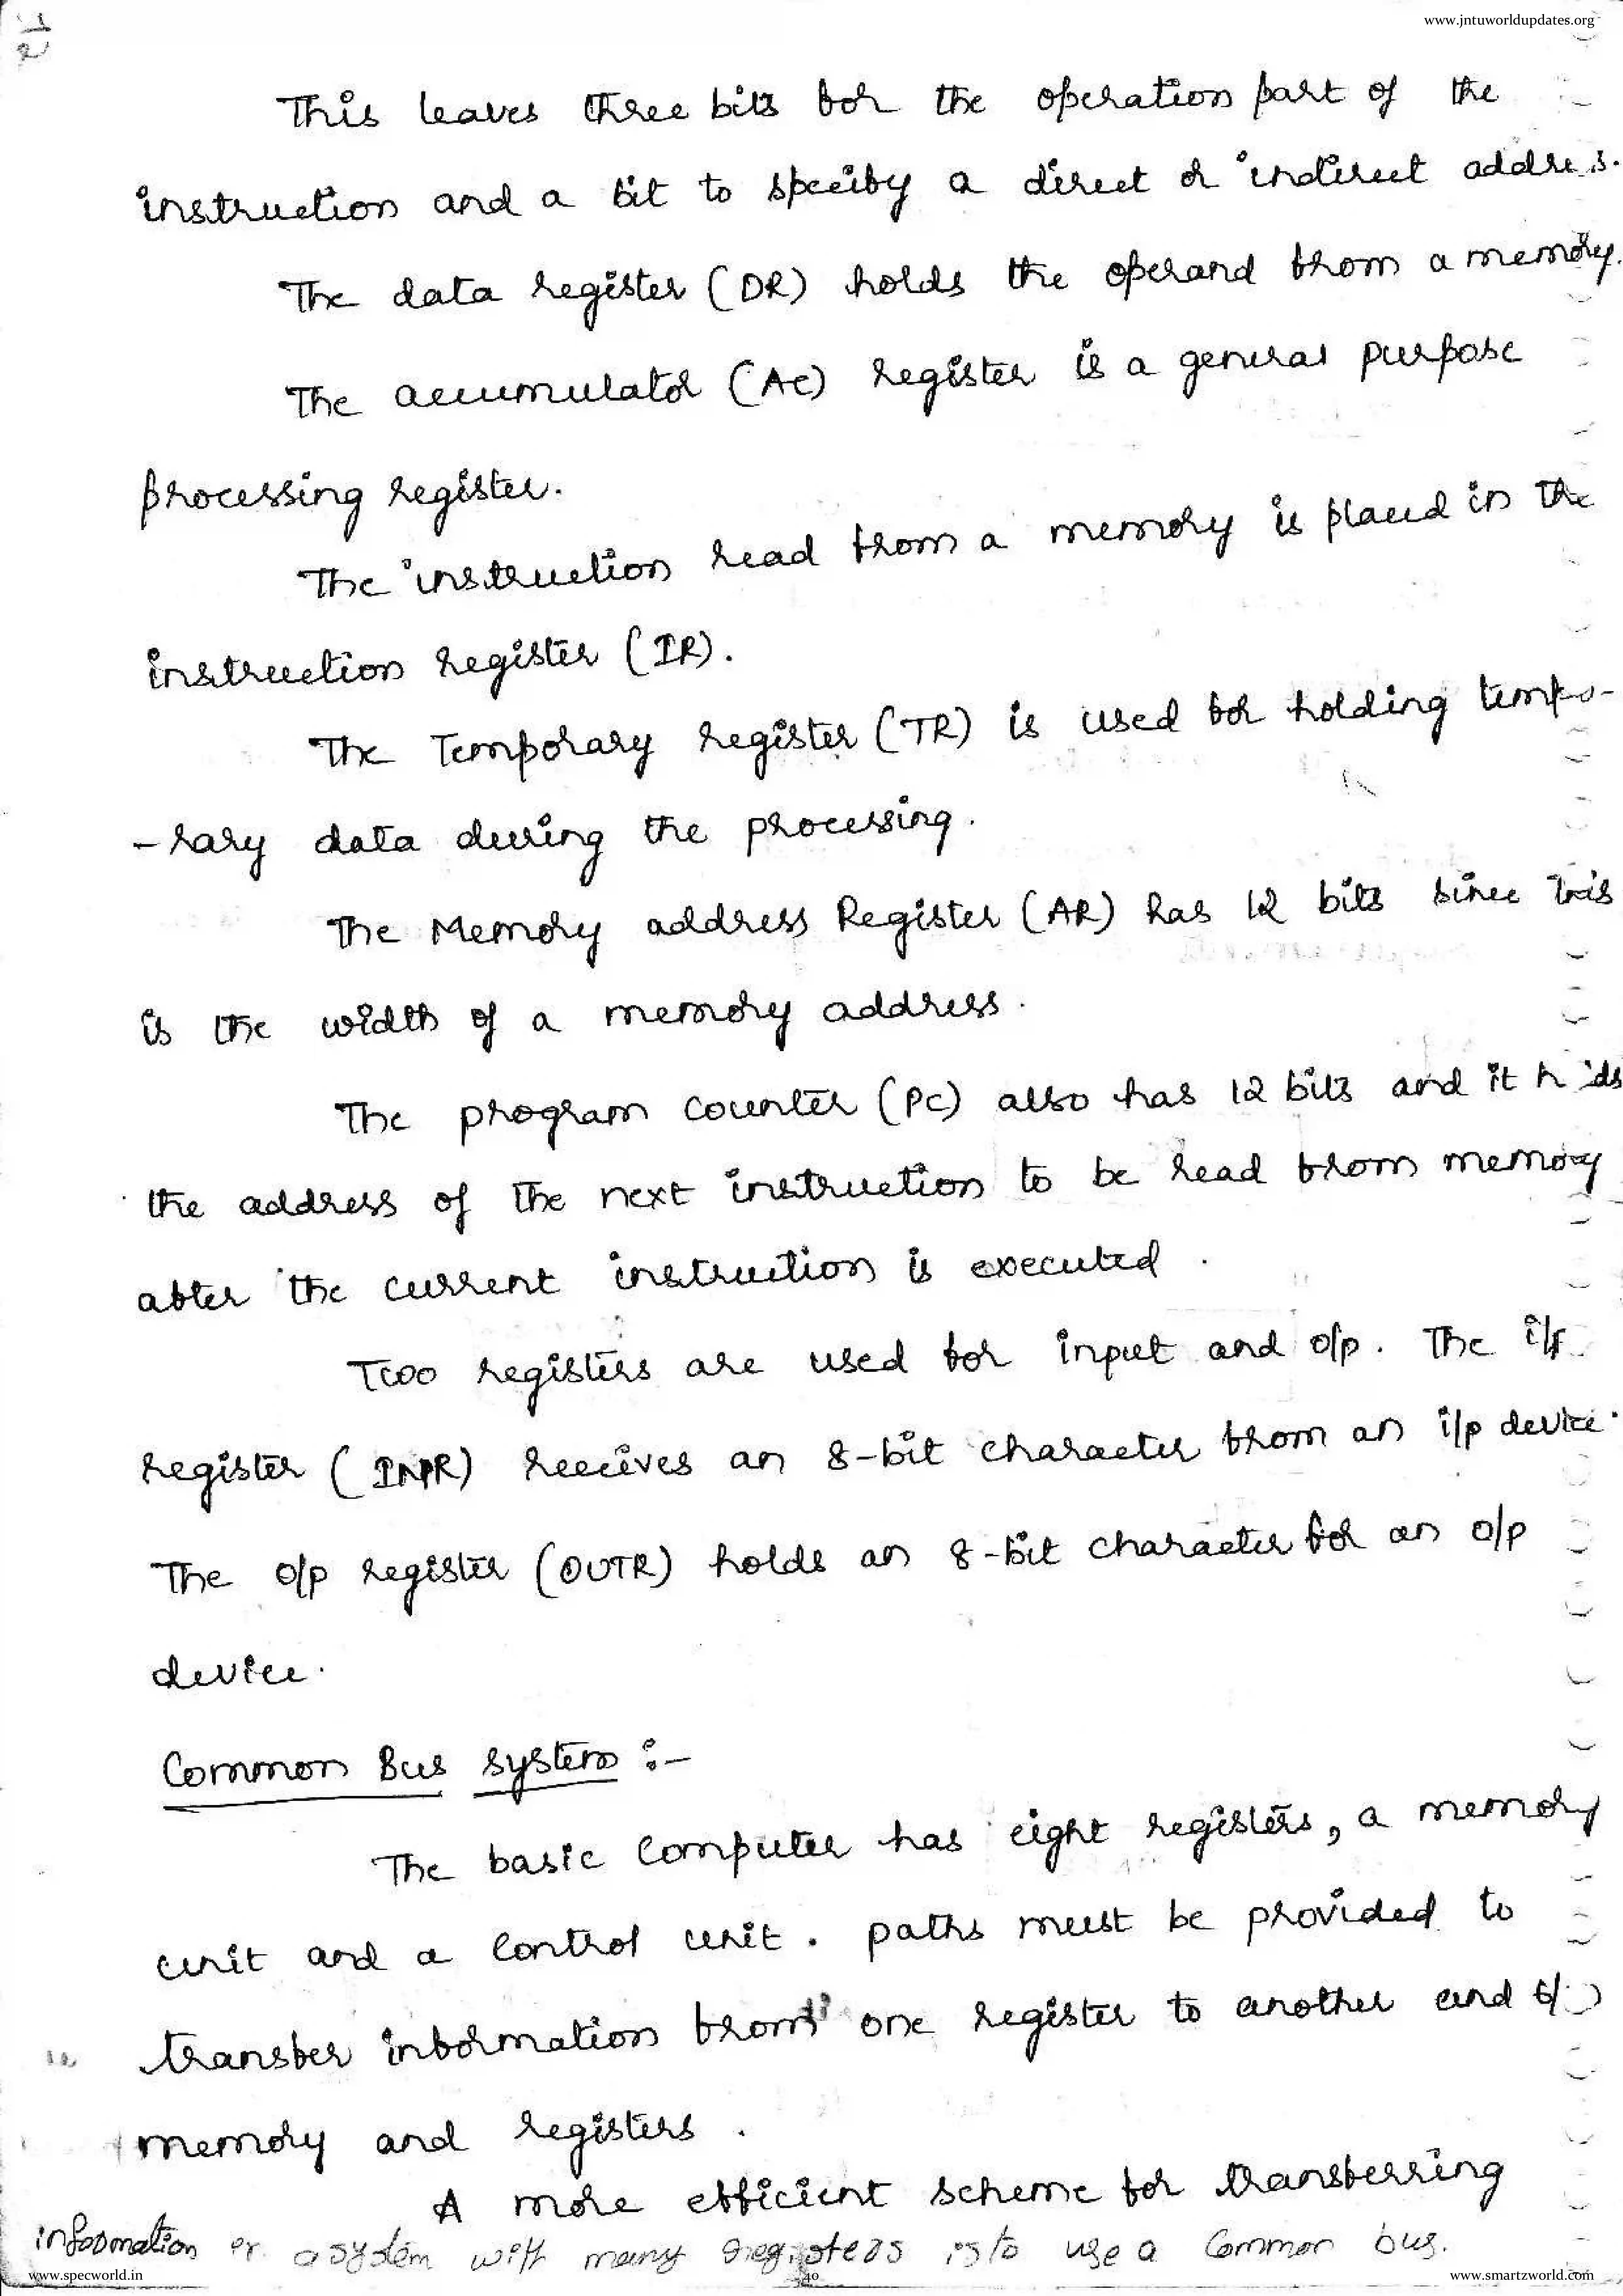 www.jntuworldupdates.org
This leaves three bits for the operation part of the
instruction and a bit to specify a direct or indirect address.
The data register (DR) holds the operand from a memory.
The accumulator (AC) register is a general purpose
processing register.
The instruction read from a memory is placed in the
instruction register (IR).
The Temporary register (TR) is used for holding tempo-
-rary data during the processing.
The Memory address Register (AR) has 12 bits since this
is the width of a memory address.
The program counter (PC) also has 12 bits and it holds
the address of the next instruction to be read from memory
after the current instruction is executed.
Two registers are used for input and o/p. The i/p
register (INPR) receives an 8-bit character from an i/p device.
The o/p register (OUTR) holds an 8-bit character for an o/p
device.
Common Bus system :-
The basic computer has eight registers, a memory
unit and a control unit. paths must be provided to
transfer information from one register to another and b/n
memory and registers.
A more efficient scheme for transferring
information a system with many registers is to use a Common bus.
www.specworld.in 40 www.smartzworld.com